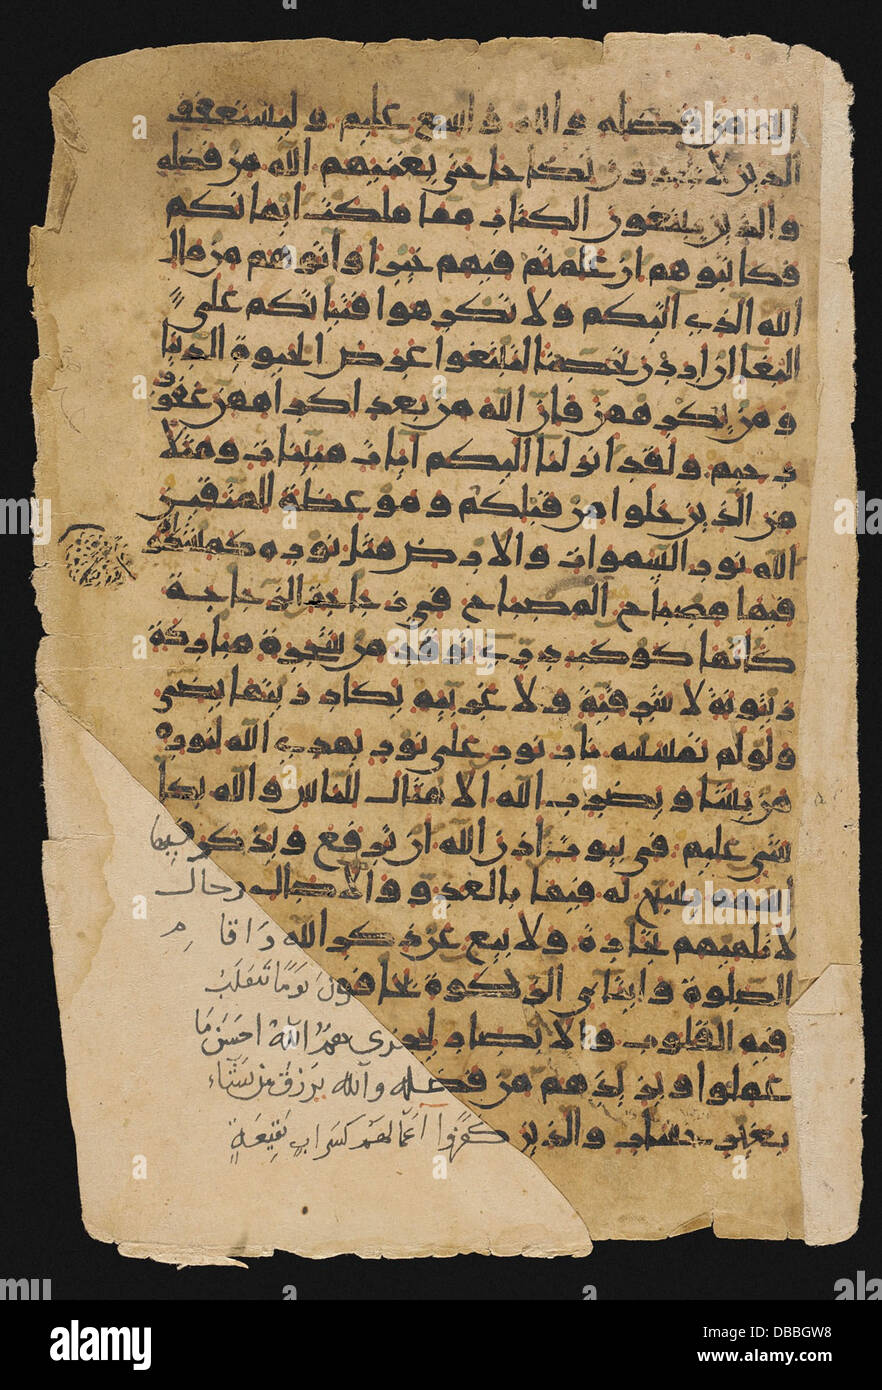 الله من فضله والله واسع عليم وليستعفف
الذين لا يجدون نكاحا حتى يغنيهم الله من فضله
والذين يبتغون الكتاب مما ملكت ايمانكم
فكاتبوهم ان علمتم فيهم خيرا وآتوهم من مال
الله الذي آتيكم ولا تكرهوا فتياتكم على
البغا ان اردن تحصنا لتبتغوا عرض الحيوة الدنيا
ومن يكرههن فان الله من بعد اكراههن غفور
رحيم ولقد انزلنا اليكم آيات مبينات ومثلا
من الذين خلوا من قبلكم وموعظة للمتقين
الله نور السموات والارض مثل نوره كمشكوة
فيها مصباح المصباح في زجاجة الزجاجة
كانها كوكب دري توقد من شجرة مباركة
زيتونة لا شرقية ولا غربية يكاد زيتها يضي
ولو لم تمسسه نار نور على نور يهدي الله لنوره
من يشا ويضرب الله الامثال للناس والله بكل
شي عليم في بيوت اذن الله ان ترفع ويذكر فيها
اسمه يسبح له فيها بالغدو والاصال رجال
لا تلهيهم تجارة ولا بيع عن ذكر الله وَاقامِ
الصلوة وايتاي الزكوة يخافون يَومًا تَتَقلب
فيه القلوب والابصار ليجزى‍همُ اللهُ احسَنَ مَا
عملوا ويزيدهم من فضله والله يَرزق من يَشَآء
بغير حساب والذين كفروا اعمالهم كسراب بقيعةٍ
alamy
DBBGW8
www.alamy.com